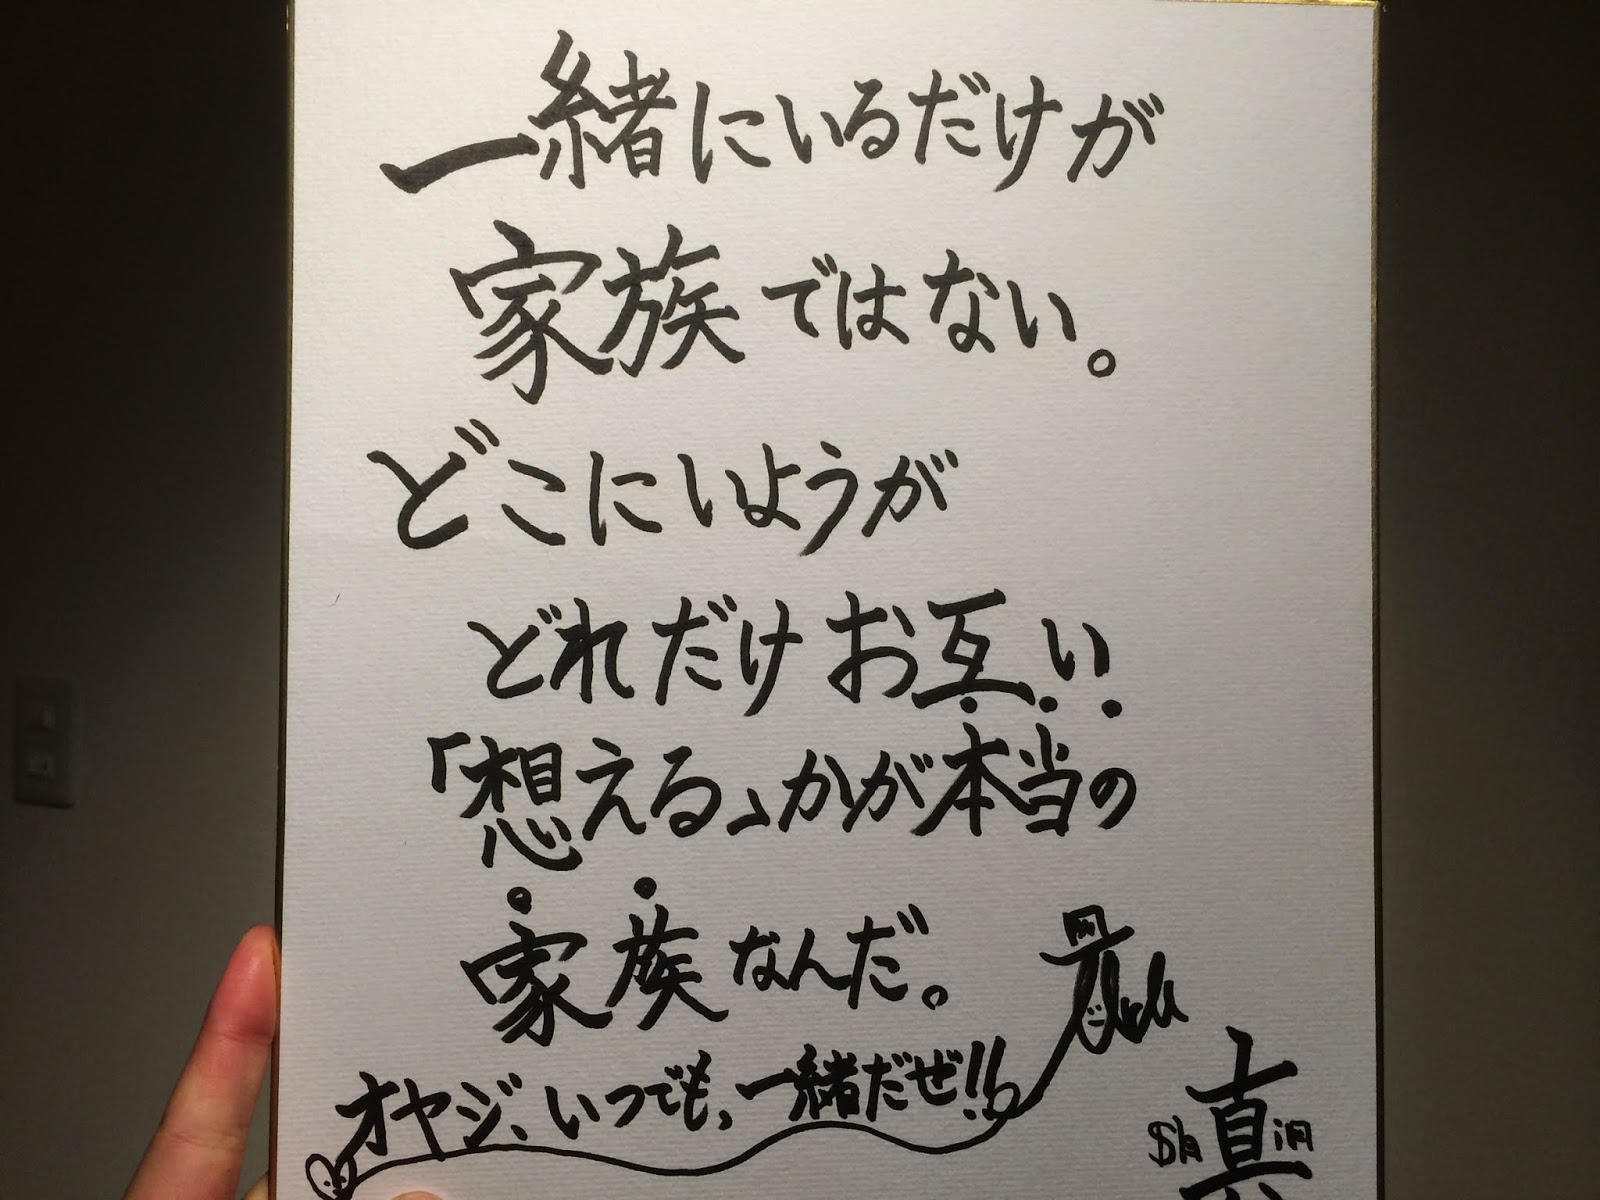 一緒にいるだけが
家族ではない。
どこにいようが
どれだけお互い
「想える」かが本当の
家族なんだ。
オヤジ、いつでも、一緒だぜ!!
真